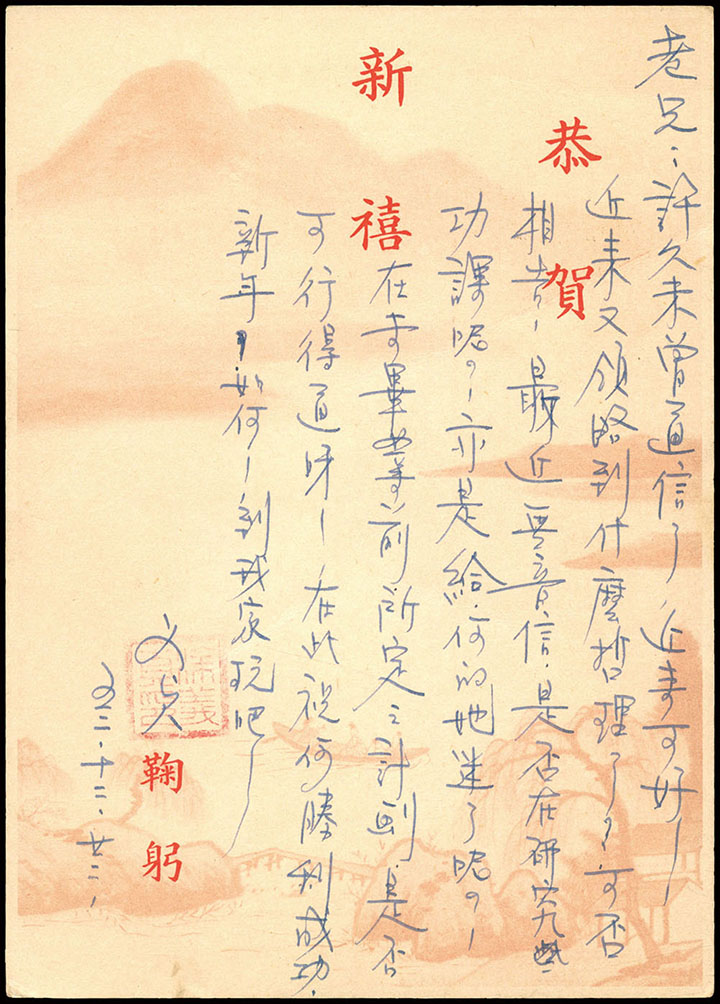 恭賀
新禧
老兄：許久未曾通信了 近來可好！
近來又領略到什麼哲理了？可否
相告！最近無音信，是否在研究九
功課呢？！亦是給你的她迷了呢？！
在未畢業前所定之計劃，是否
可行得通呀！在此祝你勝利成功，
新年？如何！到我家玩吧！
鞠躬
五二、十二、廿二、